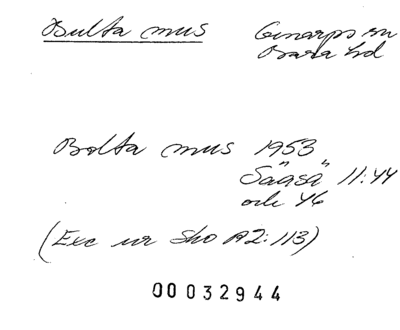 Bulta mus Genarps sn
Bara hd
Bolta mus 1953
"Säåså" 11:44
och 46
(Exc ur Sko A2:113)
00032944